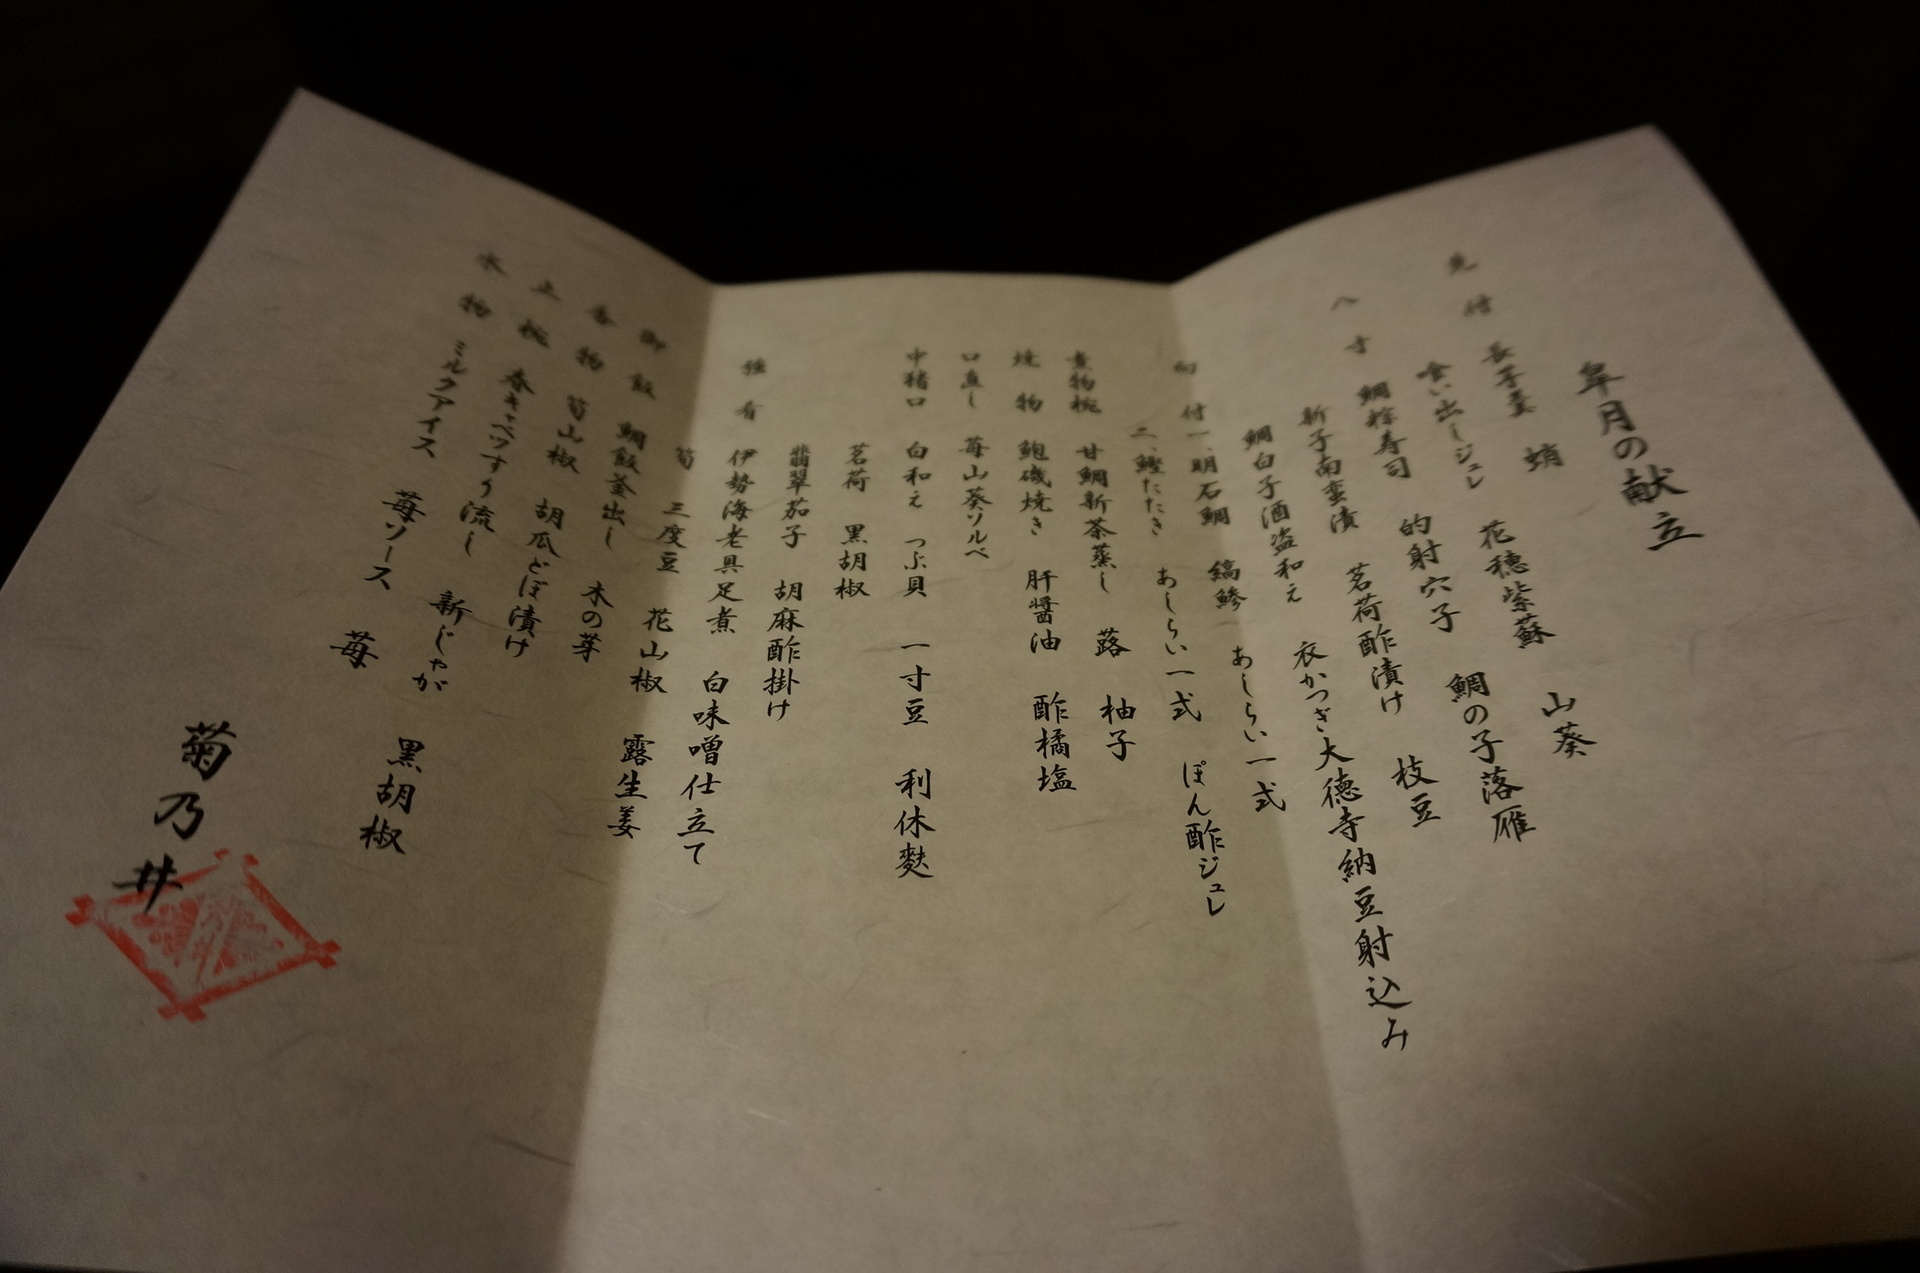 皐月の献立
先付 長芋羹 蛸 花穂紫蘇 山葵
喰い出しジュレ
八寸 鯛粽寿司 的射穴子 鯛の子落雁
新子南蛮漬 茗荷酢漬け 枝豆
鯛白子酒盗和え 衣かつぎ大徳寺納豆射込み
向付 一、明石鯛 縞鯵 あしらい一式
二、鰹たたき あしらい一式 ぽん酢ジュレ
煮物椀 甘鯛新茶蒸し 蕗 柚子
焼物 鮑磯焼き 肝醤油 酢橘塩
口直し 苺山葵ソルベ
中猪口 白和え つぶ貝 一寸豆 利休麩
茗荷 黒胡椒
翡翠茄子 胡麻酢掛け
強肴 伊勢海老具足煮 白味噌仕立て
筍 三度豆 花山椒 露生姜
御飯 鯛飯釜出し 木の芽
香物 筍山椒 胡瓜どぼ漬け
止椀 春キャベツすり流し 新じゃが 黒胡椒
水物 ミルクアイス 苺ソース 苺
菊乃井